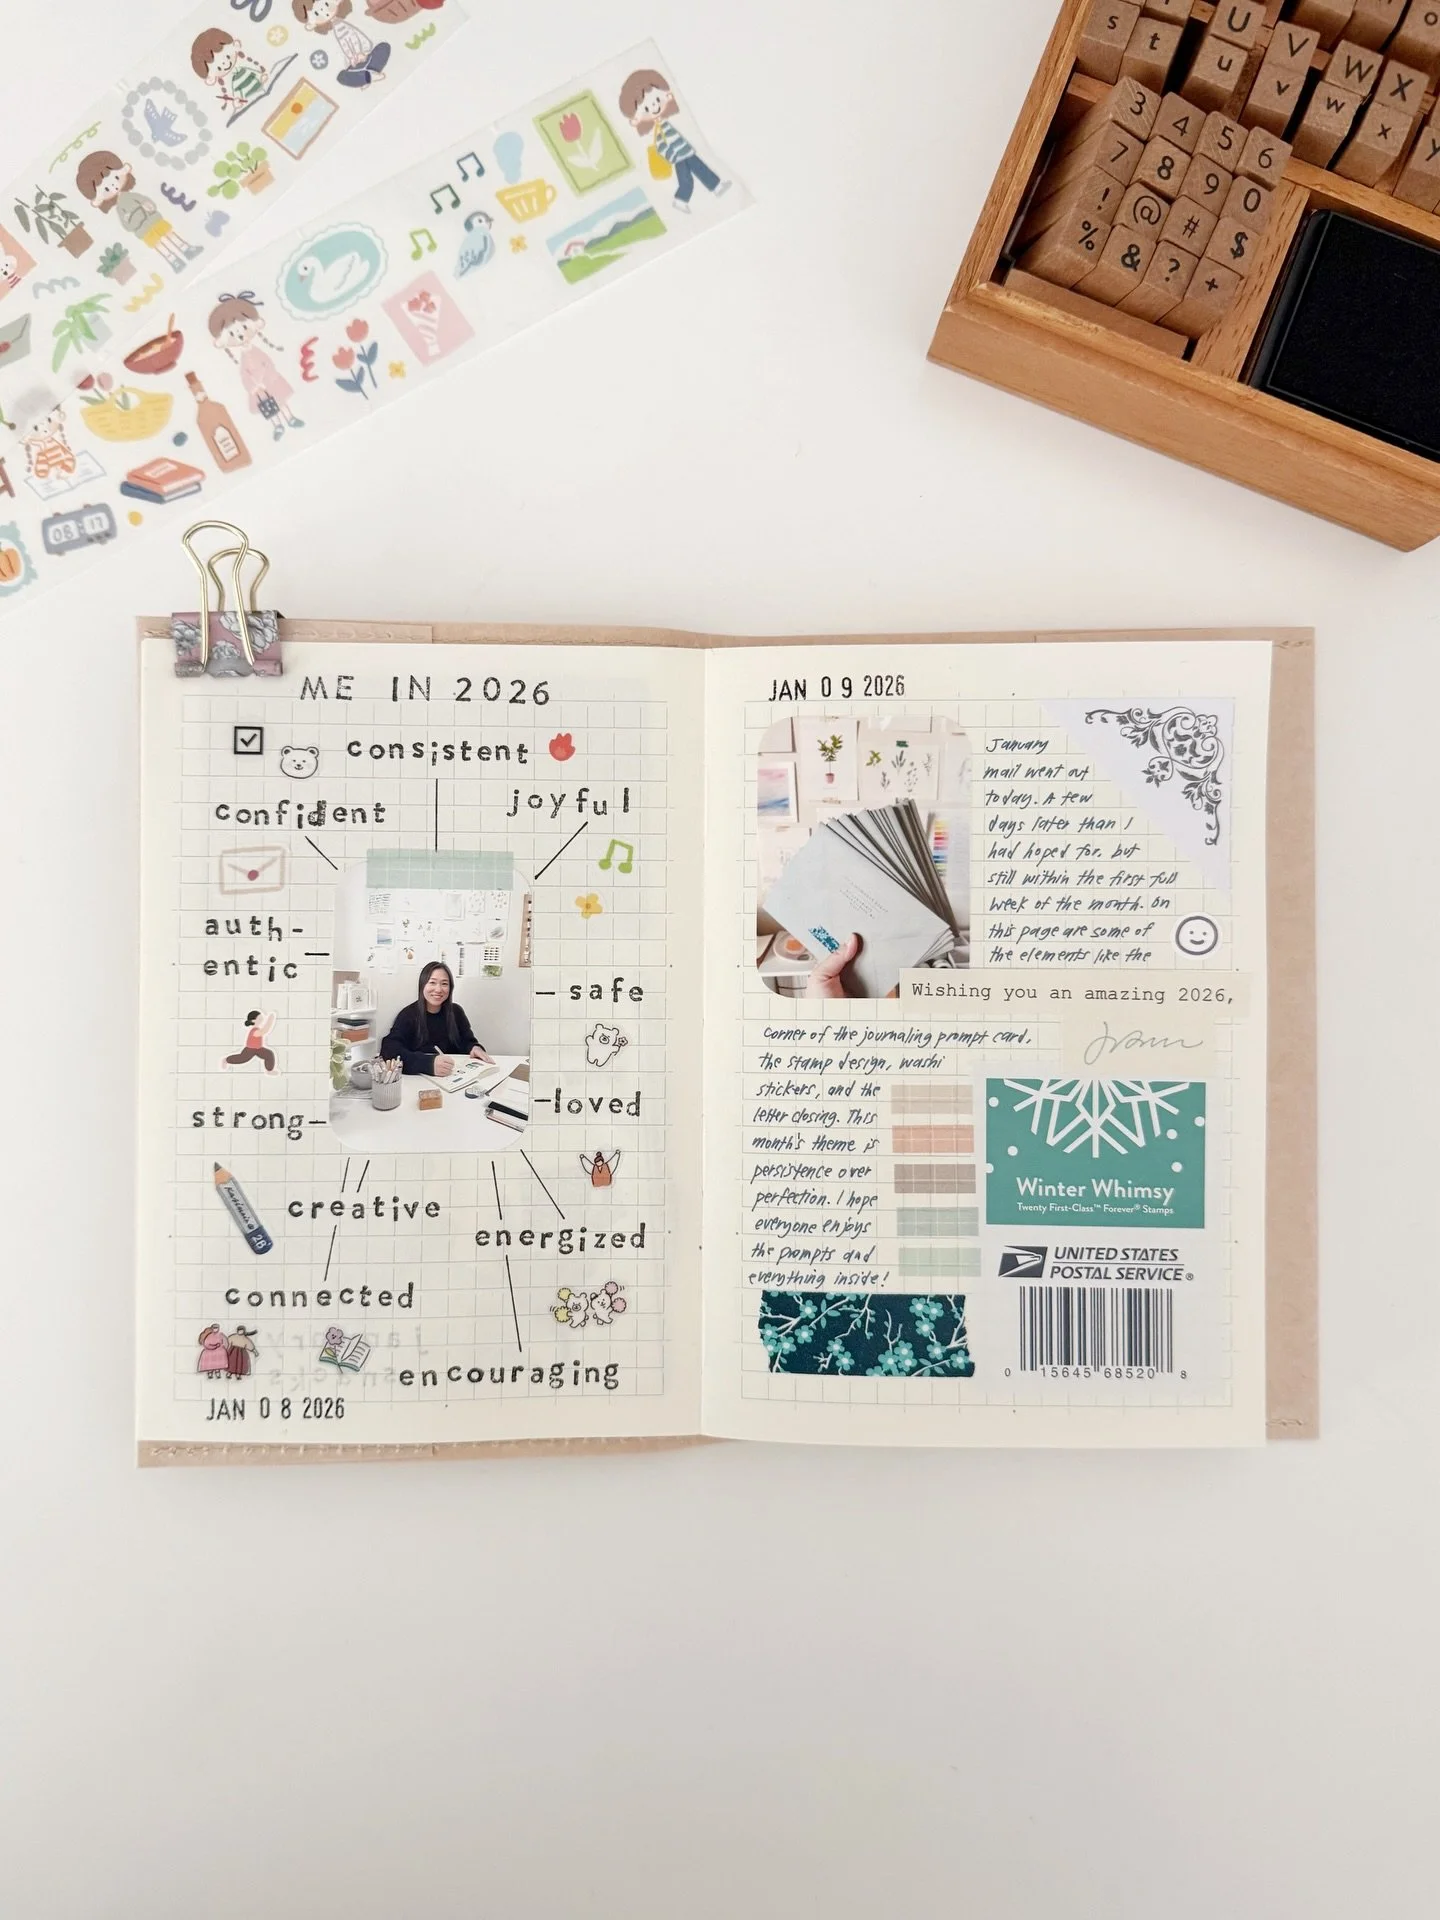 s
t
U
u
V
v
W
w
X
x
y
3 4 5 6
7 8 9 0
! @ # $
% & ? +
08 17
ME IN 2026
consistent
confident
joyful
auth-
entic
safe
strong
loved
creative
energized
2B
connected
encouraging
JAN 08 2026
JAN 09 2026
January
mail went out
today. A few
days later than I
had hoped for, but
still within the first full
week of the month. On
this page are some of
the elements like the
Wishing you an amazing 2026,
corner of the journaling prompt card,
the stamp design, washi
stickers, and the
letter closing. This
month's theme is
persistence over
perfection. I hope
everyone enjoys
the prompts and
everything inside!
Winter Whimsy
Twenty First-Class™ Forever® Stamps
UNITED STATES
POSTAL SERVICE®
0 15645 68520 8